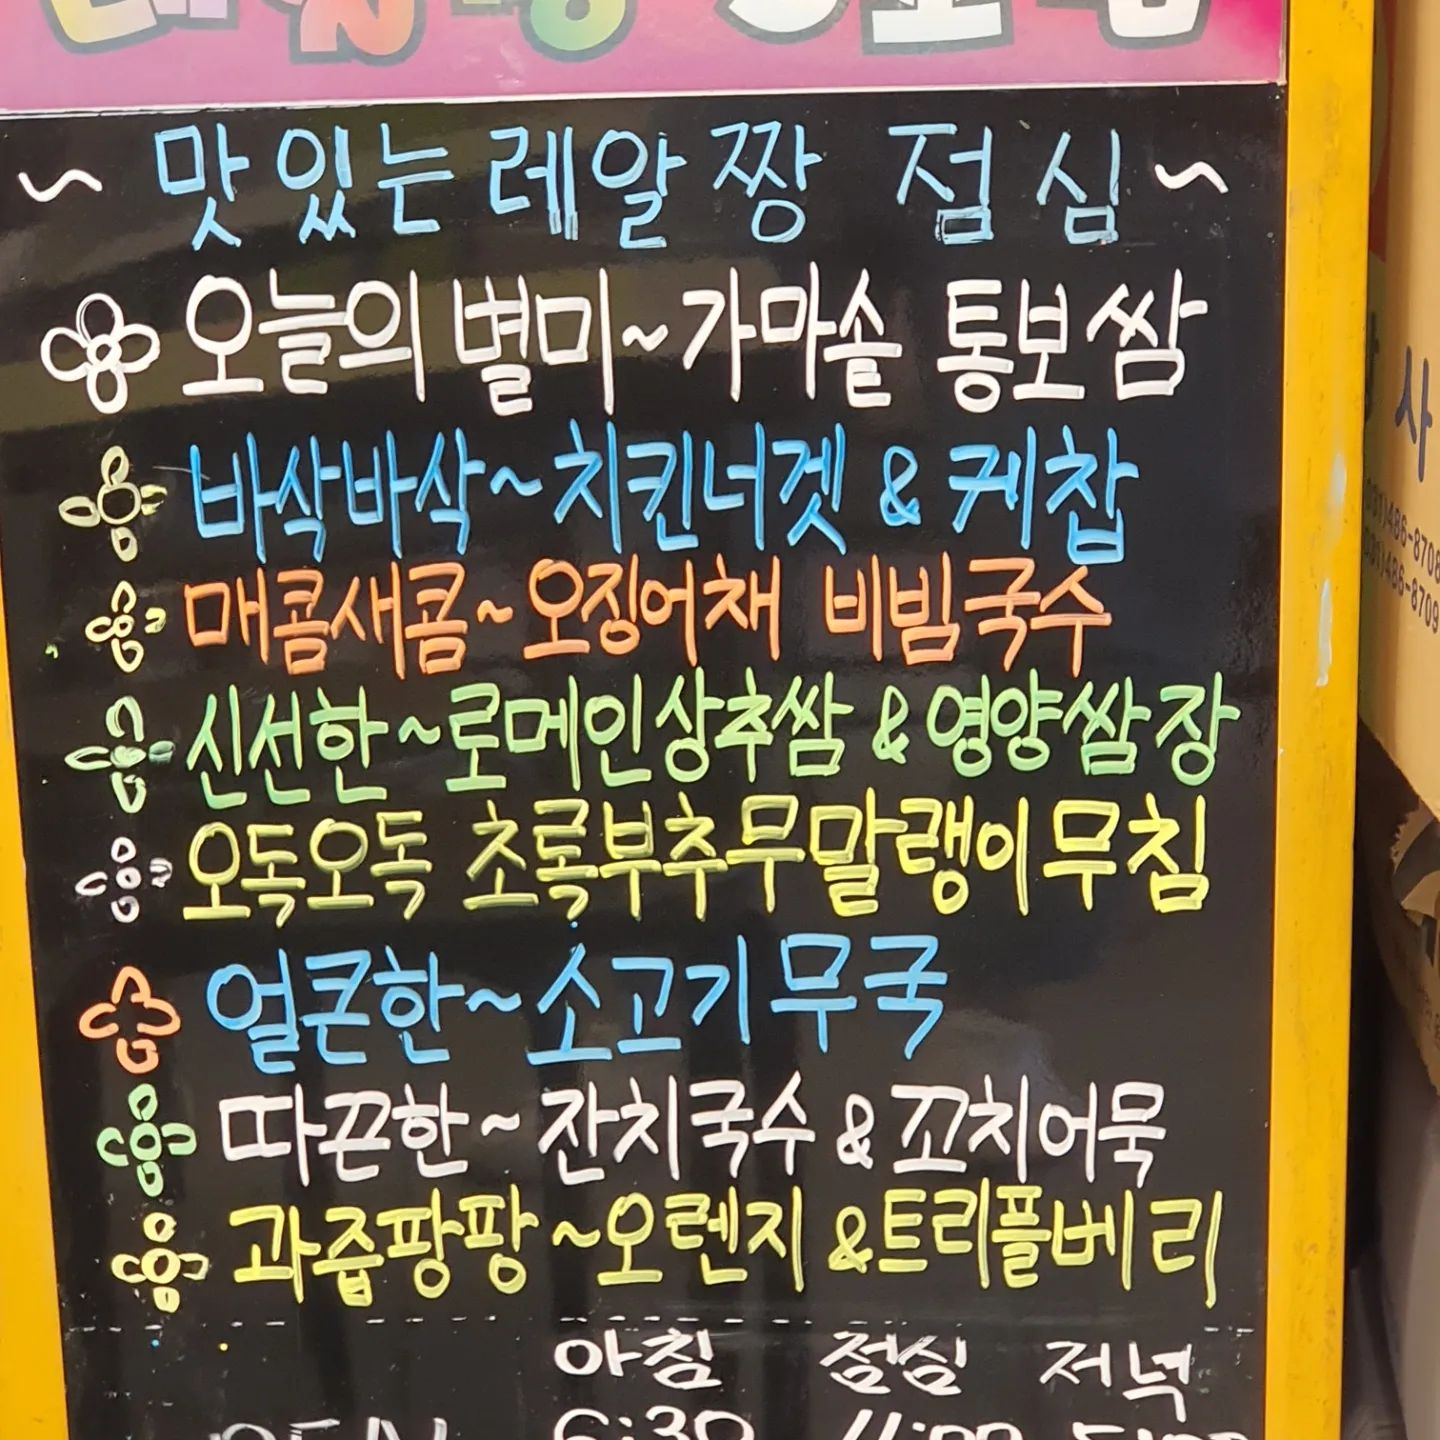 ~ 맛있는 레알짱 점심 ~
오늘의 별미~가마솥 통보쌈
바삭바삭~치킨너겟 & 케찹
매콤새콤~오징어채 비빔국수
신선한~로메인상추쌈 & 영양쌈장
오독오독 초록부추무말랭이무침
얼큰한~소고기무국
따끈한~잔치국수 & 꼬치어묵
과즙팡팡~오렌지 &트리플베리
아침 점심 저녁
OPEN 6:30
사
031)486-8708
031)486-8709